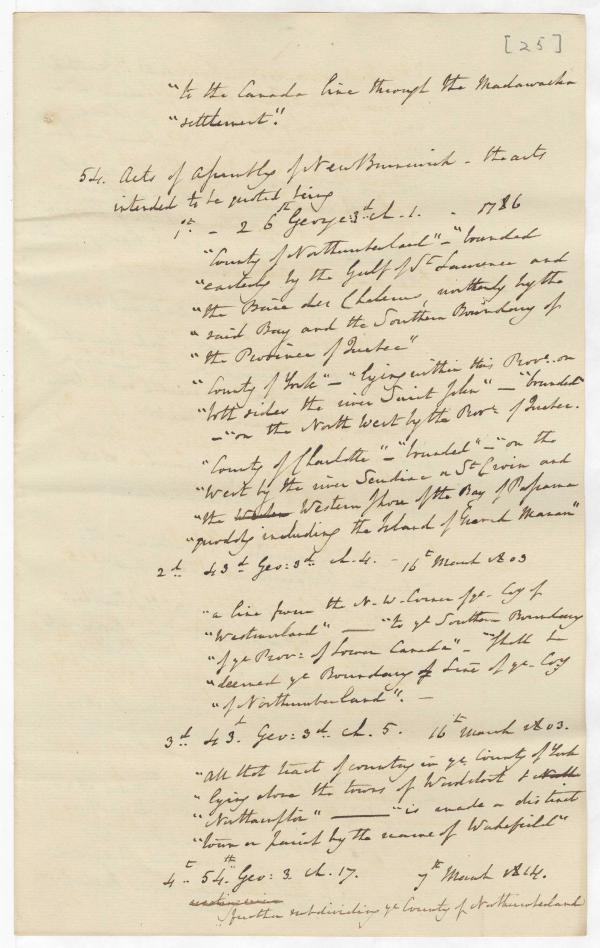 [25]
"to the Canada line through the Madawaska
"settlement".
54. Acts of Assembly of New Brunswick - the acts
intended to be quoted being
1st. - 26th George 3d. ch. 1. - 1786
"County of Northumberland" - "bounded
"easterly by the Gulf of St Lawrence and
"the Baie des Chaleurs, northerly by the
"said Bay and the Southern Boundary of
"the Province of Quebec"
"County of York" - "lying within this Prov: on
"both sides the river Saint John" - "bounded"
- "on the North West by the Prov: of Quebec.
"County of Charlotte" - "bounded" - "on the
"West by the river Scudiac or St Croix and
"the Western Shore of the Bay of Passama
"quoddy including the Island of Grand Manan"
2d. 43d Geo: 3d. ch. 4. - 16th March 1803
"a line from the N-W-Corner of ye Coy of
"Westmorland" — "to ye Southern Boundary
"of ye Prov: of Lower Canada" - "Shall be
"deemed ye Boundary of Line of ye Coy
"of Northumberland". -
3d. 43d. Geo: 3d. ch. 5. 16th March 1803.
"All that tract of country in ye County of York
"lying above the towns of Woodstock &
"Northampton" — "is made a distinct
"town or parish by the name of Wakefield"
4th 54th. Geo: 3 ch. 17. 7th March 1814.
further subdividing ye County of Northumberland